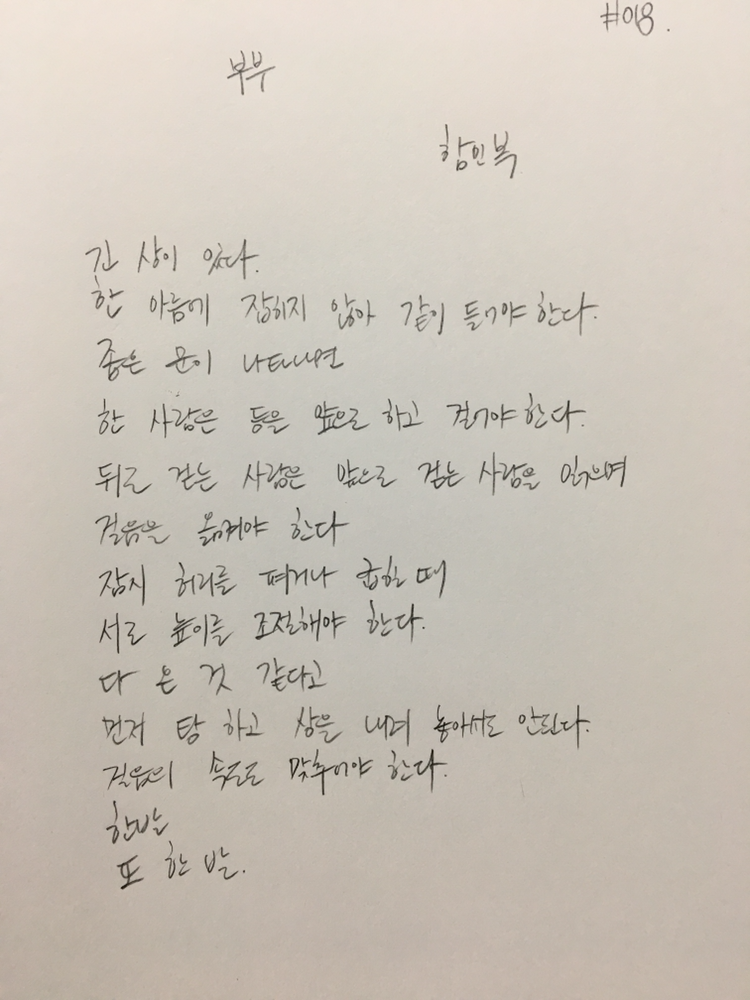 #018.
부부
함민복
긴 상이 있다.
한 아름에 잡히지 않아 같이 들어야 한다.
좁은 문이 나타나면
한 사람은 등을 앞으로 하고 걸어야 한다.
뒤로 걷는 사람은 앞으로 걷는 사람을 읽으며
걸음을 옮겨야 한다
잠시 허리를 펴거나 굽힐 때
서로 높이를 조절해야 한다.
다 온 것 같다고
먼저 탕 하고 상을 내려 놓아서도 안된다.
걸음의 속도도 맞추어야 한다.
한발
또 한 발.